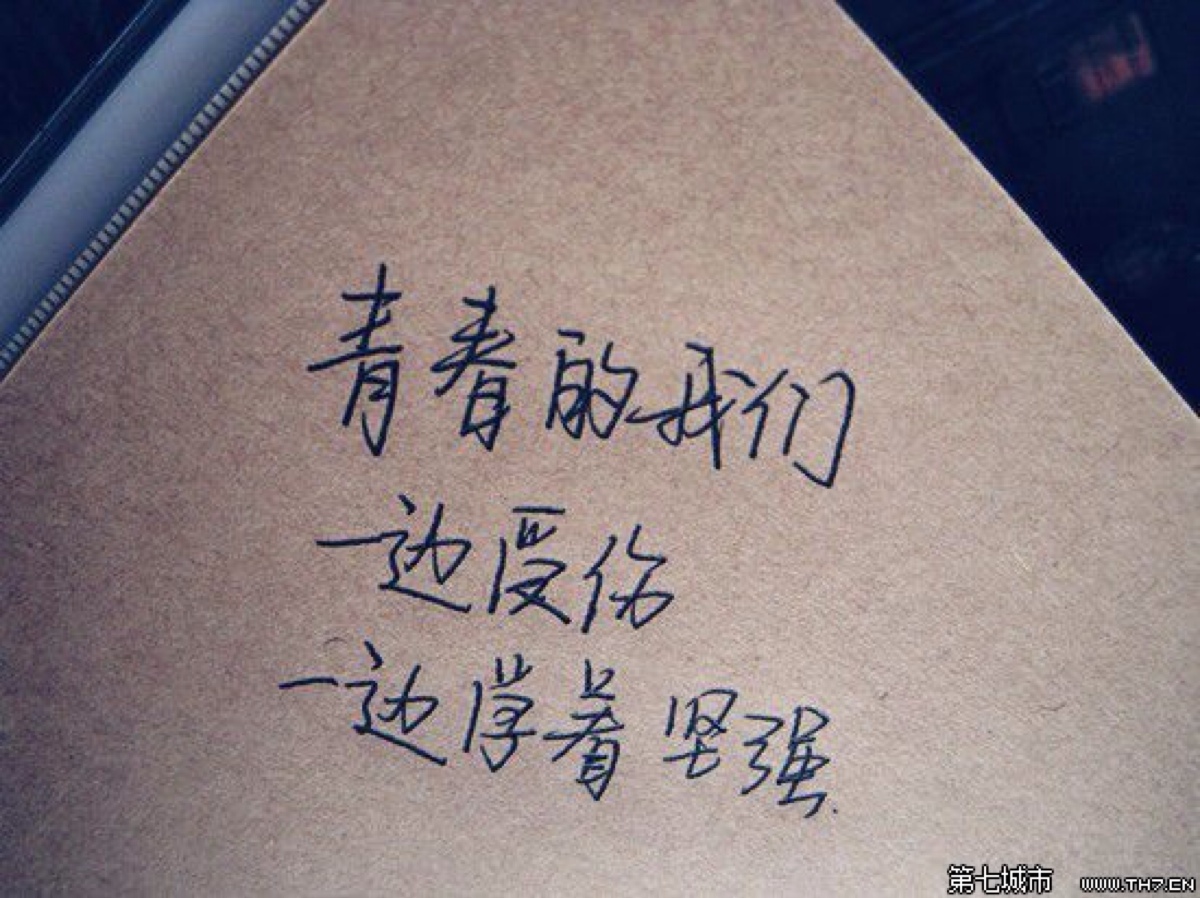 青春的我们
一边受伤
一边学着坚强.
第七城市 WWW.TH7.CN